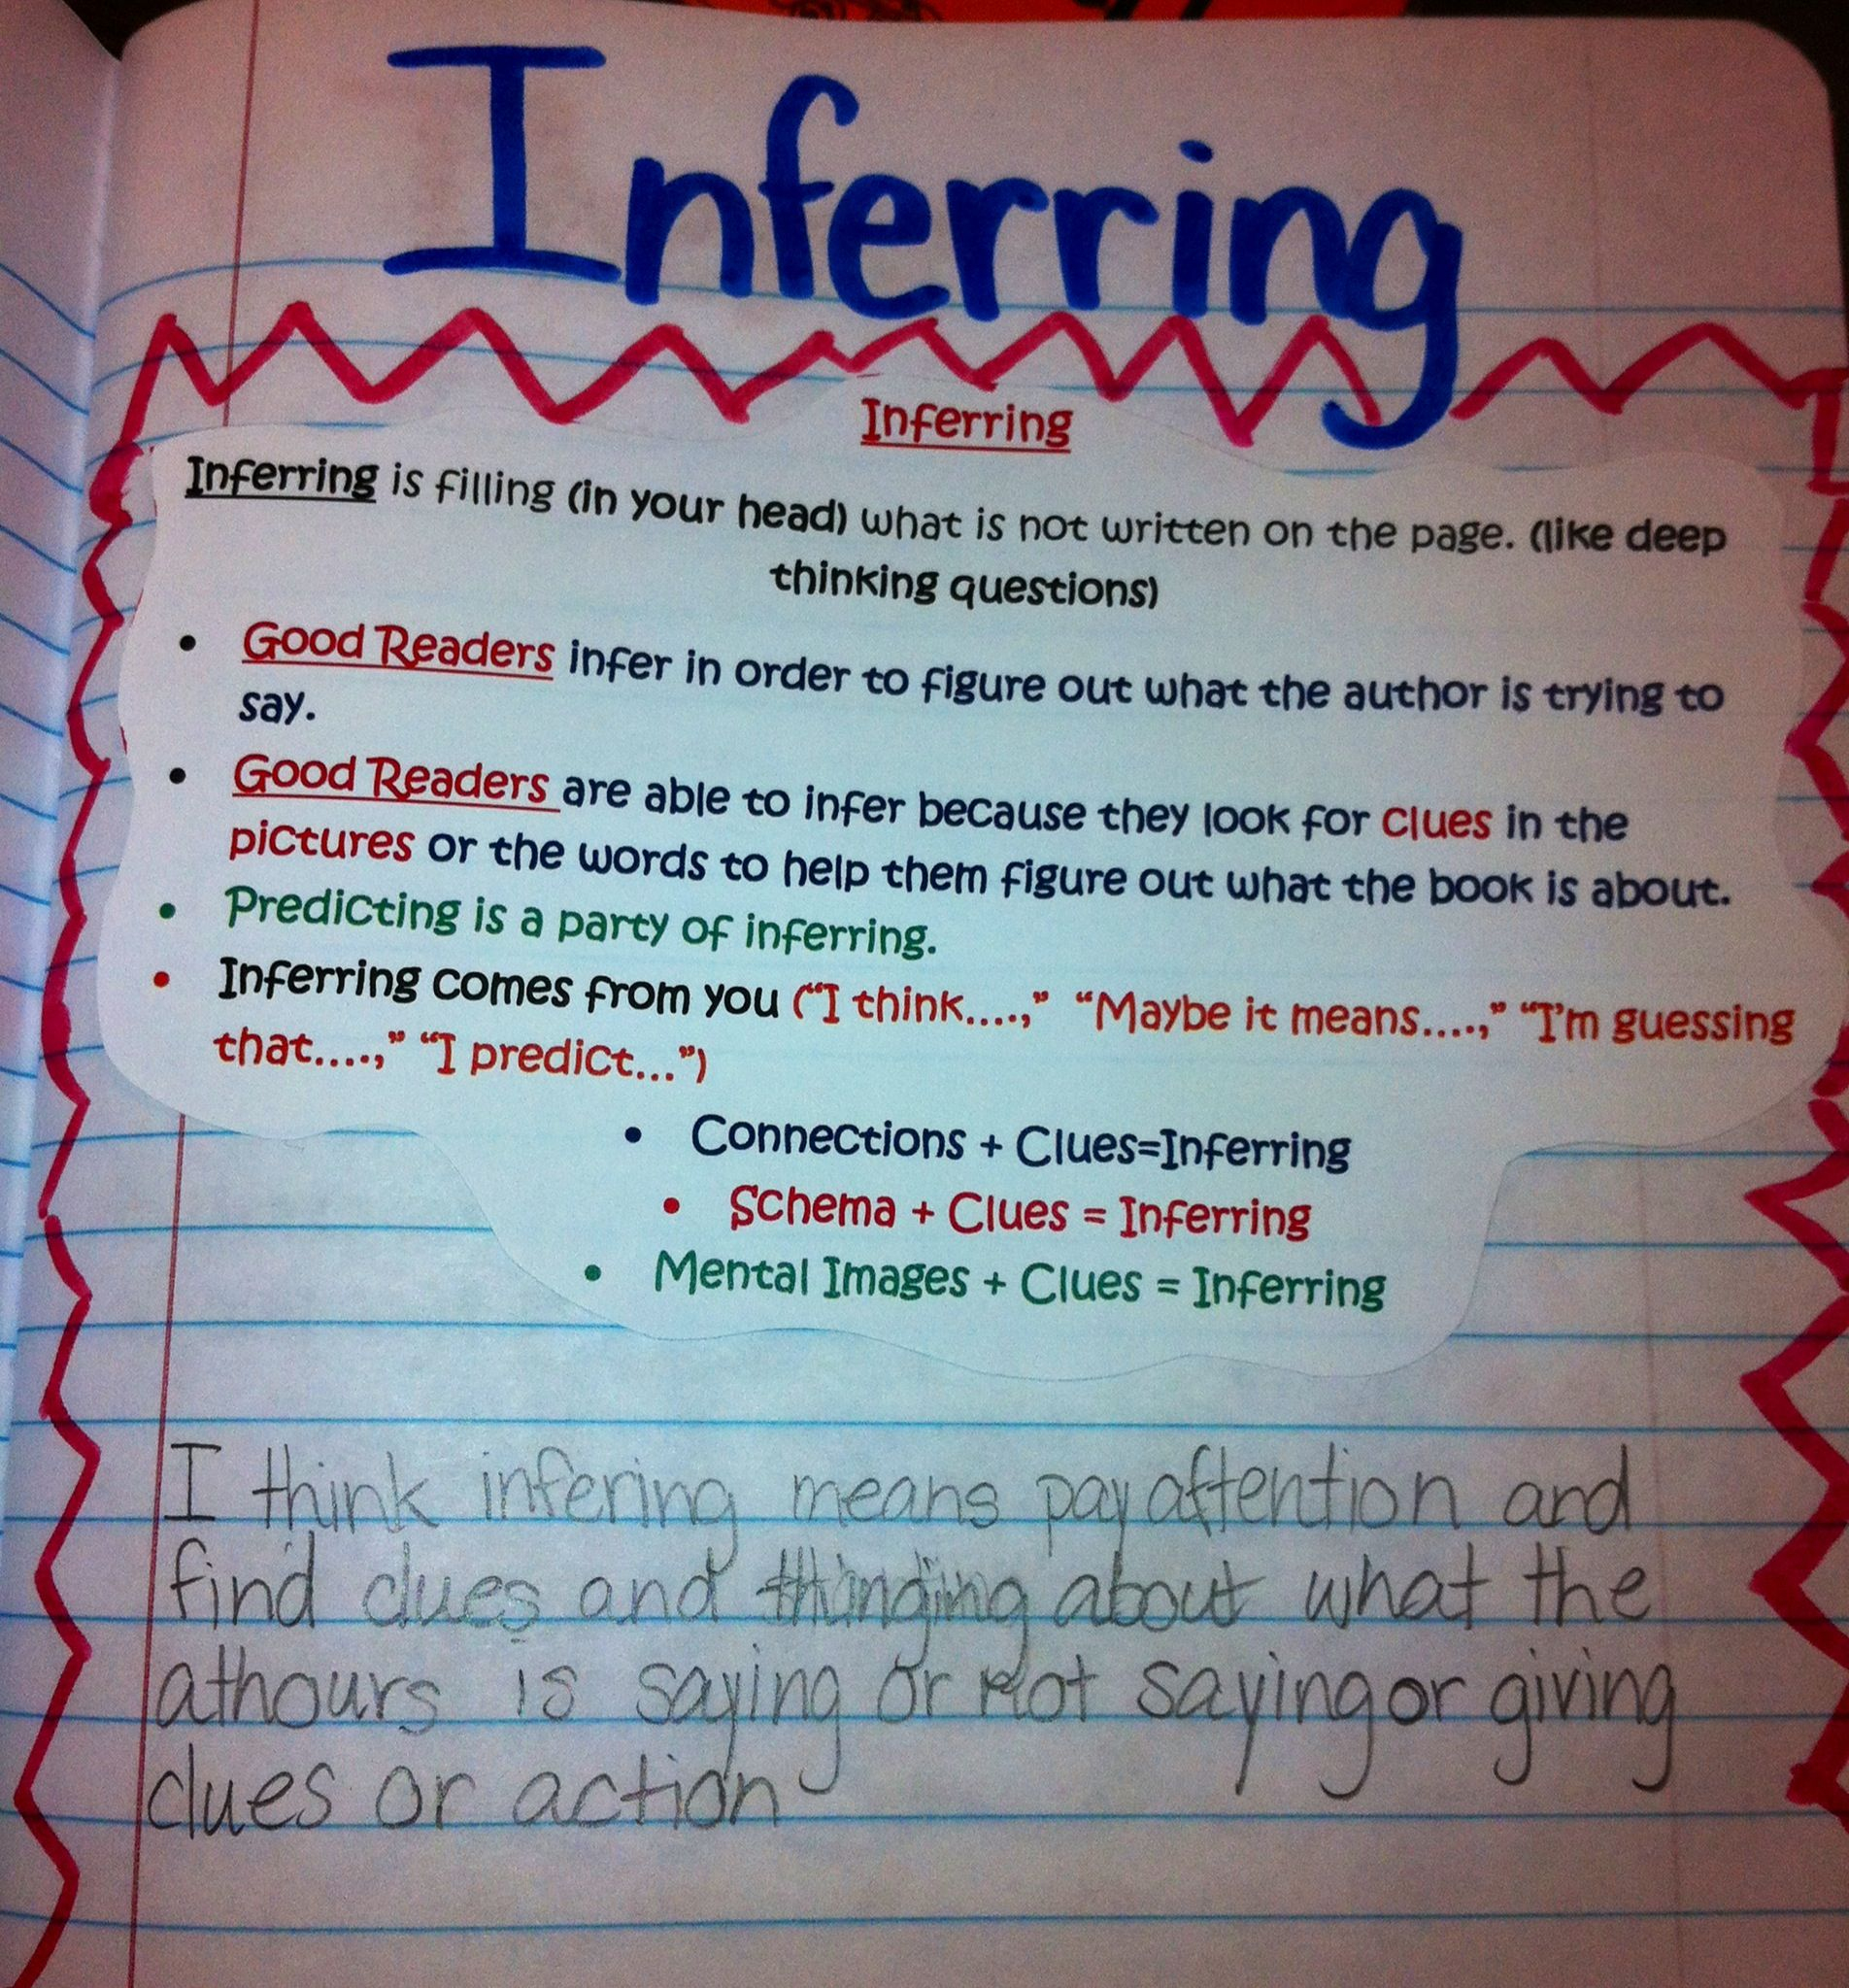 Inferring
Inferring
Inferring is filling (in your head) what is not written on the page. (like deep
thinking questions)
• Good Readers infer in order to figure out what the author is trying to
say.
• Good Readers are able to infer because they look for clues in the
pictures or the words to help them figure out what the book is about.
• Predicting is a party of inferring.
• Inferring comes from you (“I think....,” “Maybe it means....,” “I'm guessing
that....,” “I predict...”)
• Connections + Clues=Inferring
• Schema + Clues = Inferring
• Mental Images + Clues = Inferring
I think infering means pay attention and
find clues and about what the
athours is saying or not saying or giving
clues or action